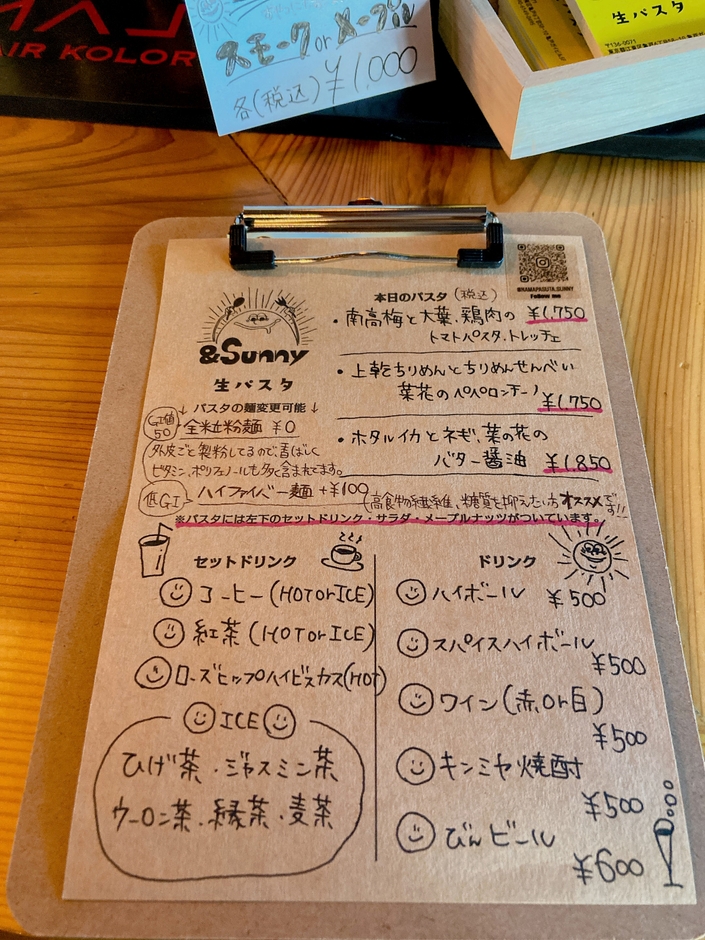 AIR KOLOR
スモーク or メープル
各(税込) ¥1,000
生パスタ
〒136-0071
@NAMAPASUTA.SUNNY
Follow me
&Sunny
生パスタ
↓ パスタの麺変更可能 ↓
GI値50 全粒粉麺 ¥0
外皮ごと製粉してるので、香ばしく
ビタミン、ポリフェノールも多く含まれてます。
低GI ハイファイバー麺 +¥100 (高食物繊維、糖質を抑えたい方オススメです!!
本日のパスタ (税込)
・南高梅と大葉、鶏肉の ¥1,750
トマトパスタ、トレッチェ
・上乾ちりめんとちりめんせんべい
菜花のペペロンチーノ ¥1,750
・ホタルイカとネギ、菜の花の
バター醤油 ¥1,850
※パスタには左下のセットドリンク・サラダ・メープルナッツがついています。
セットドリンク
コーヒー (HOT or ICE)
紅茶 (HOT or ICE)
ローズヒップハイビスカス(HOT)
ICE
ひげ茶・ジャスミン茶
ウーロン茶・緑茶・麦茶
ドリンク
ハイボール ¥500
スパイスハイボール
¥500
ワイン (赤 or 白)
¥500
キンミヤ焼酎
¥500
びんビール
¥600